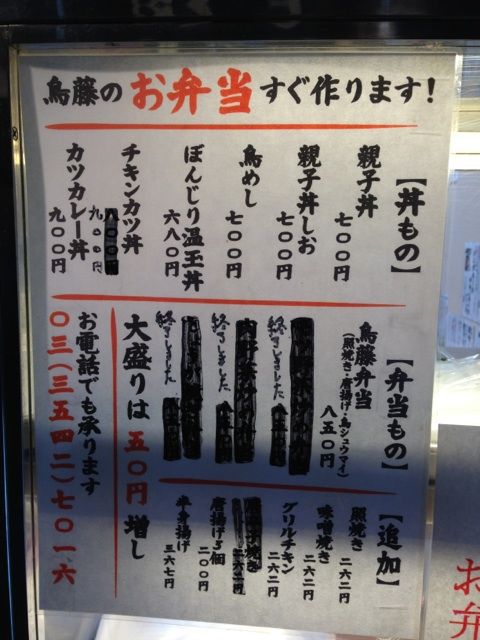 鳥藤のお弁当すぐ作ります!
【丼もの】
親子丼
七〇〇円
親子丼しお
七〇〇円
鳥めし
七〇〇円
ぼんじり温玉丼
六八〇円
チキンカツ丼
九〇〇円
カツカレー丼
九〇〇円
【弁当もの】
鳥藤弁当
(照焼き・唐揚げ・鳥シュウマイ)
八五〇円
終了しました
終了しました
終了しました
大盛りは五〇円増し
【追加】
照焼き
二六二円
味噌焼き
二六二円
グリルチキン
二六二円
唐揚げ5個
二〇〇円
半身揚げ
三六七円
お電話でも承ります
〇三(三五四二)七〇一六
お弁